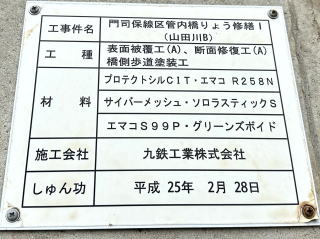 工事件名 門司保線区管内橋りょう修繕1
(山田川B)
工種 表面被覆工(A)、断面修復工(A)
橋側歩道塗装工
材料 プロテクトシルCIT・エマコ R258N
サイバーメッシュ・ソロラスティックS
エマコS99P・グリーンズボイド
施工会社 九鉄工業株式会社
しゅん功 平成 25年 2月 28日